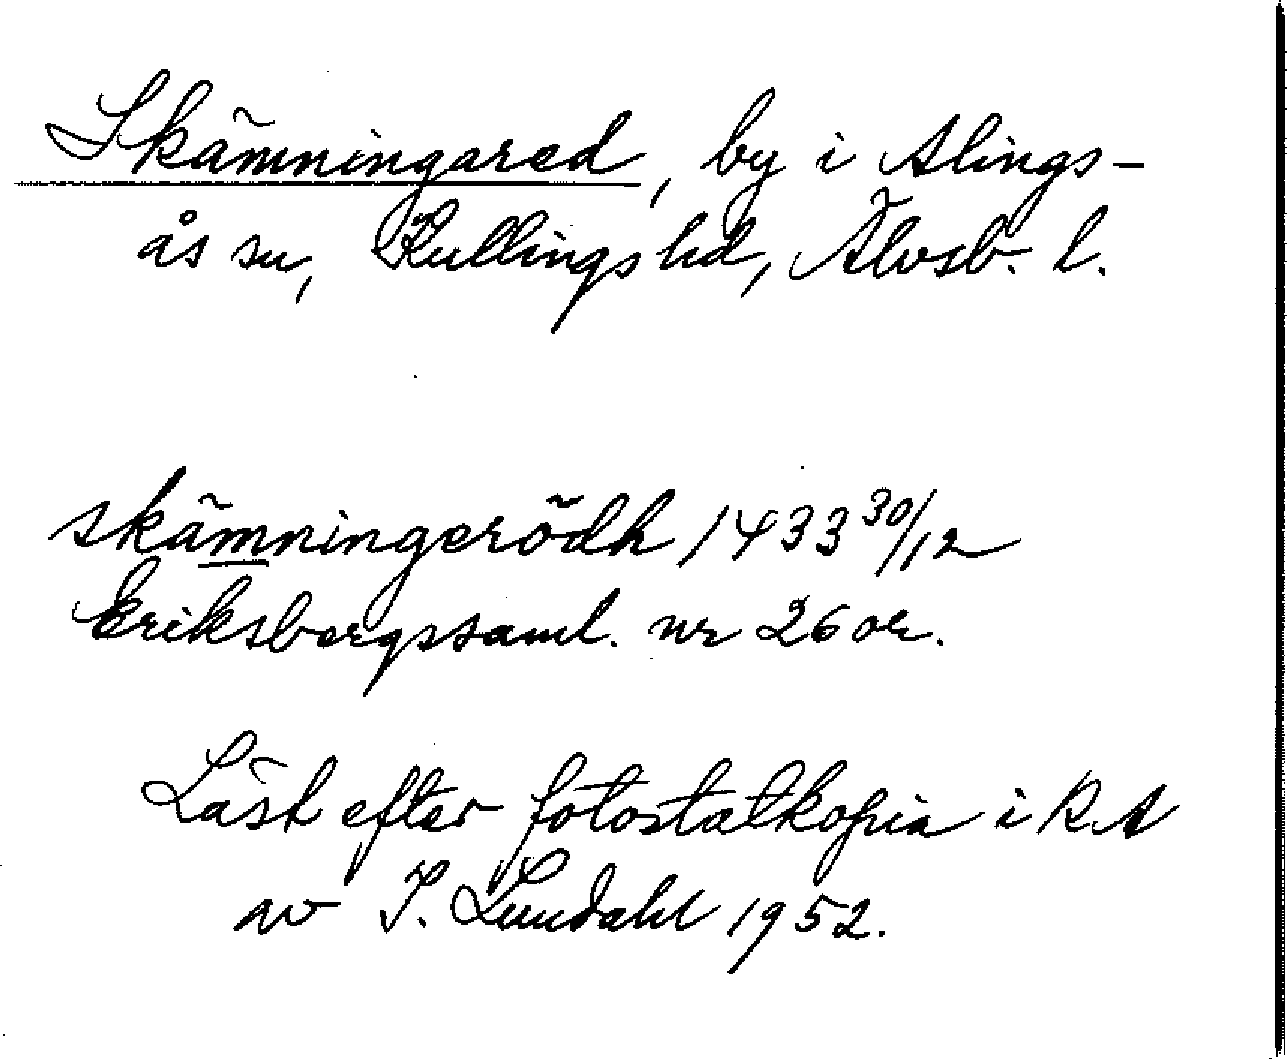 Skämningared, by i Alings-
ås sn, Kullings hd, Älvsb. l.
skämningerödh 1433 30/12
Eriksbergssaml. nr 26 or.
Läst efter fotostatkopia i RA
av I. Lundahl 1952.